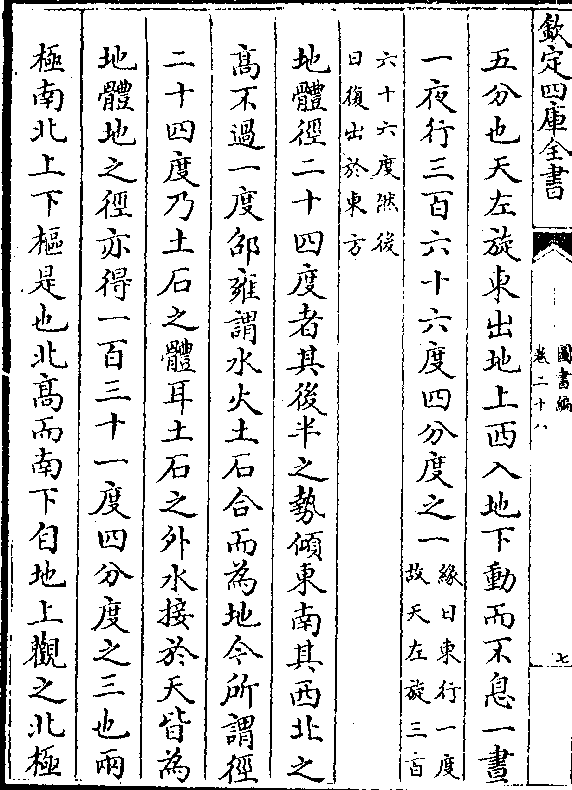 欽定四庫全書
圖書編
卷二十八
七
五分也天左旋東出地上西入地下動而不息一晝
一夜行三百六十六度四分度之一
緣日東行一度
故天左旋三百
六十六度然後
日復出於東方
地體徑二十四度者其後半之勢傾東南其西北之
髙不過一度邵雍謂水火土石合而為地今所謂徑
二十四度乃土石之體耳土石之外水接於天皆為
地體地之徑亦得一百三十一度四分度之三也兩
極南北上下樞是也北髙而南下自地上觀之北極